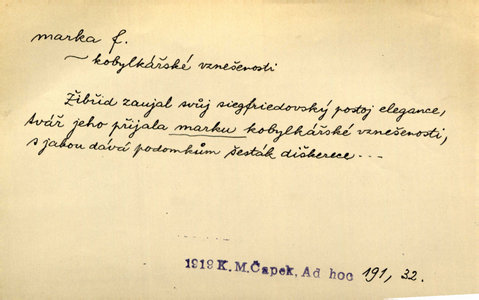 marka f.
~ kobylkářské vznešenosti
Žibřid zaujal svůj siegfriedovský postoj elegance,
tvář jeho přijala marku kobylkářské vznešenosti,
s jakou dává podomkům šesták diškerece...
1919 K. M. Čapek, Ad hoc 191, 32.